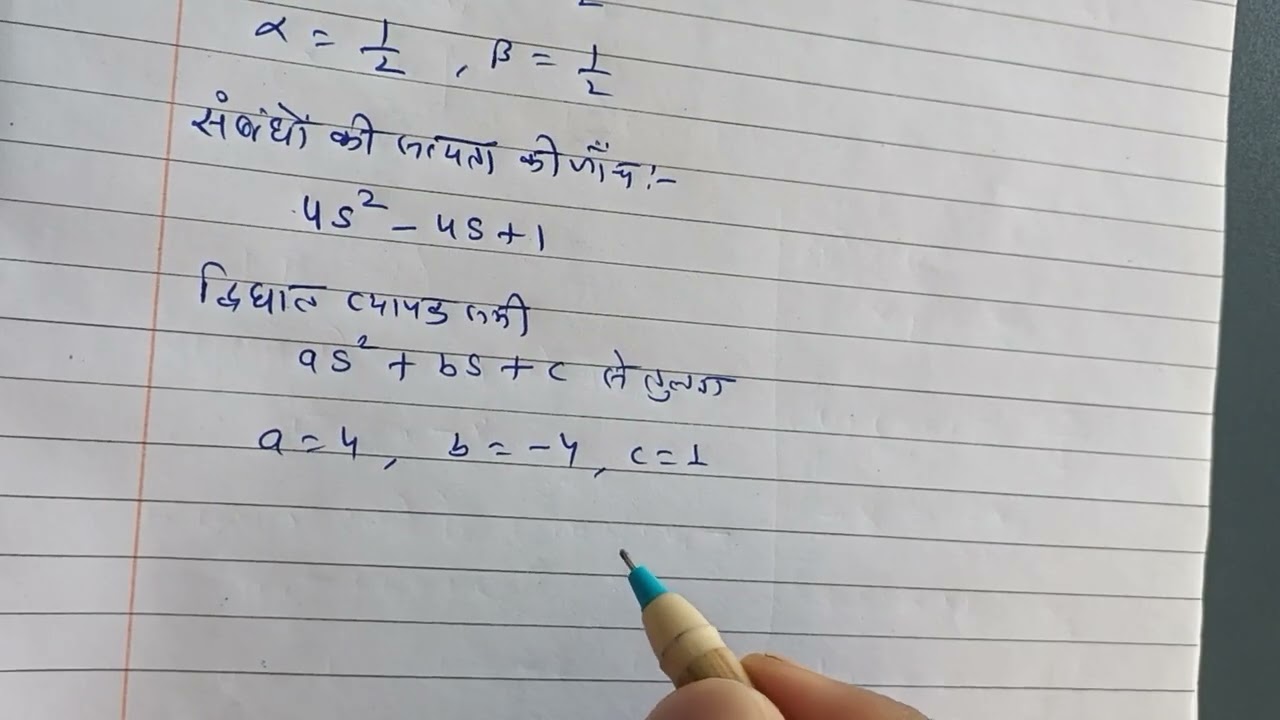 α = 1/2 , β = 1/2
संबंधों की सत्यता की जाँच :-
4s² - 4s + 1
द्विघात व्यापक समी
as² + bs + c से तुलना
a = 4 , b = -4 , c = 1